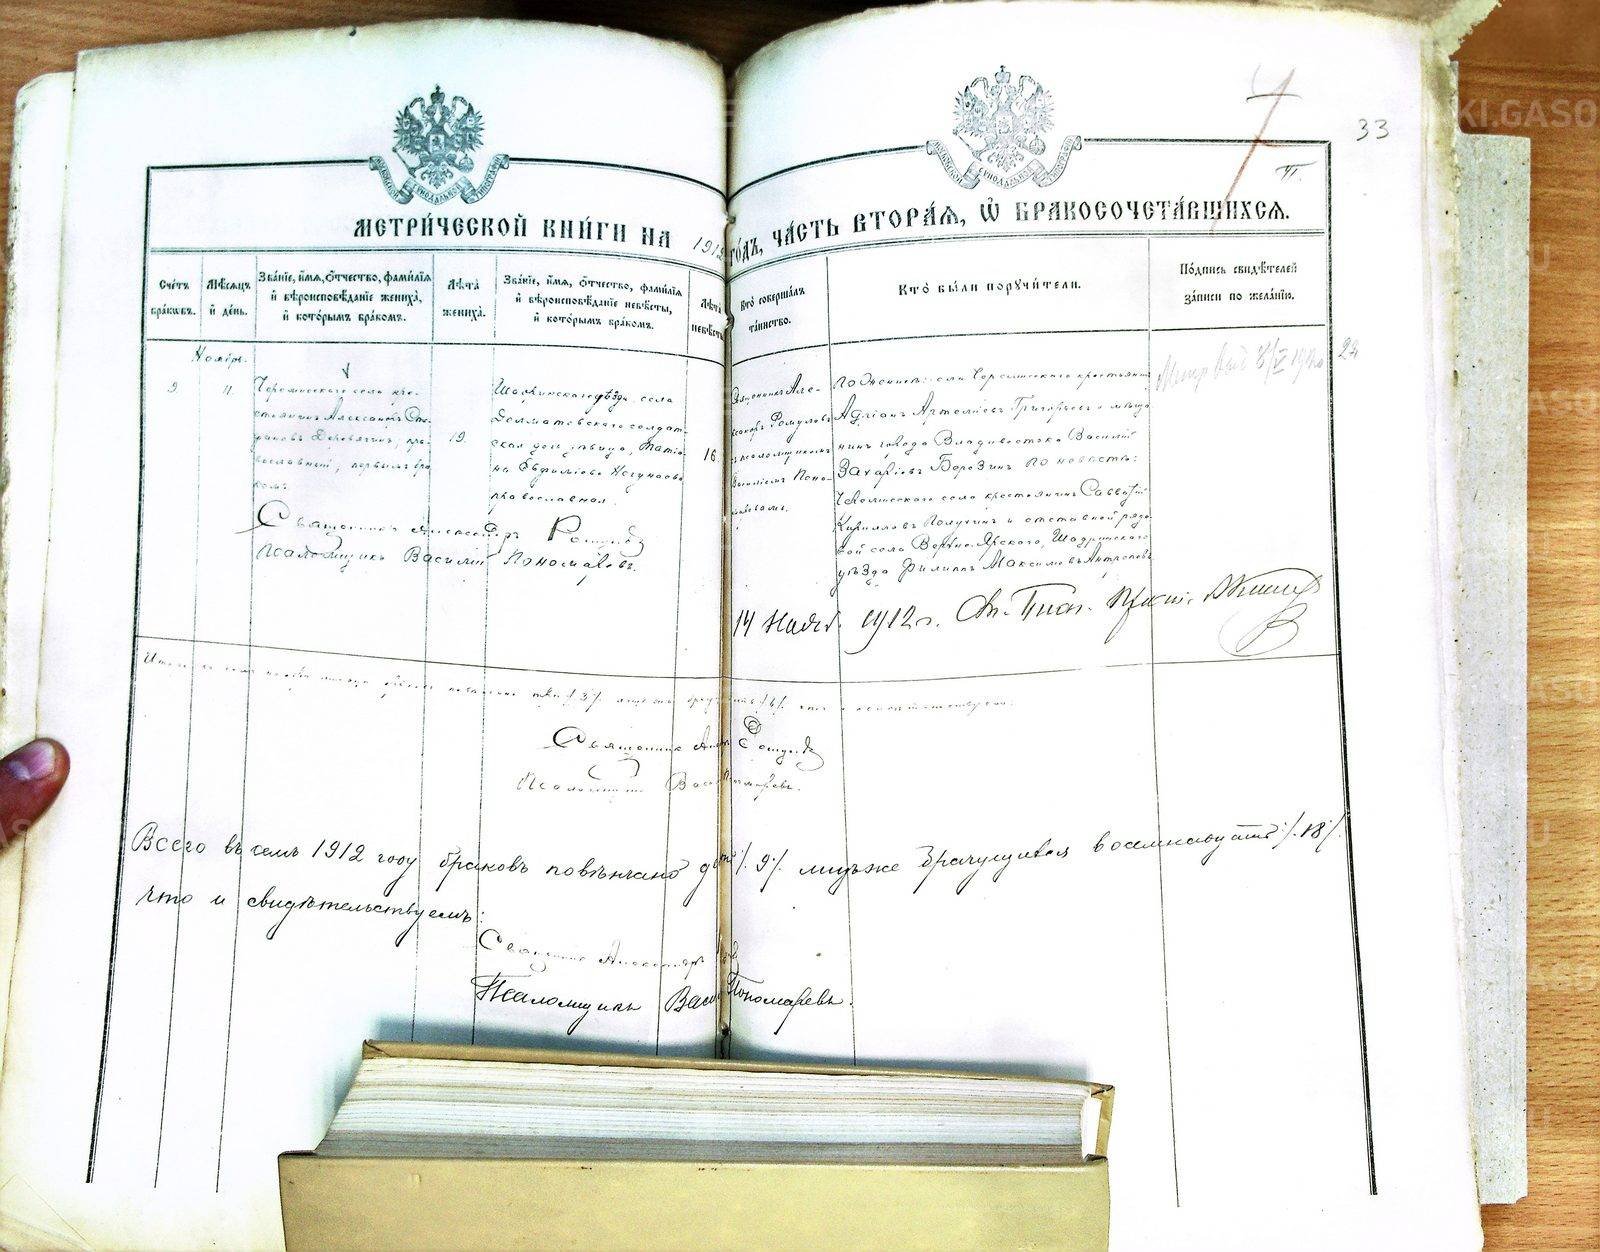 33
VI.
МЕТРИЧЕСКОЙ КНИГИ НА 1912 ГОДЪ, ЧАСТЬ ВТОРАЯ, Ѡ БРАКОСОЧЕТАВШИХСЯ.
Счетъ браковъ.
Мѣсяцъ и день.
Званіе, имя, отчество, фамилія и вѣроисповѣданіе жениха, и которымъ бракомъ.
Лѣта жениха.
Званіе, имя, отчество, фамилія и вѣроисповѣданіе невѣсты, и которымъ бракомъ.
Лѣта невѣсты
Кто совершалъ таинство.
Кто были поручители.
Подпись свидѣтелей записи по желанію.
Ноябрь.
9.
11.
села кре-
стьянинъ Александръ Сте-
пановъ Деревягинъ, пра-
вославный, первымъ бра
комъ.
19.
Шадринскаго уѣзда, села
Долматовскаго солдат-
ская дочь дѣвица, Татiа-
на Евфиміева
православная.
16.
Священникъ Але-
ксандръ Ромуловъ
съ псаломщикомъ
Василіемъ Поно-
маревымъ.
По женихѣ: села крестьянинъ
Адріанъ Артеміевъ Григорьевъ и мѣща
нинъ города Владивостока Василій
Захаріевъ Борозинъ по невѣстѣ:
села крестьянинъ Савватій
Кирилловъ и отставной рядо
вой села Шадринскаго
уѣзда Филиппъ Максимовъ Антроповъ
8/IV 1912
Священникъ Александръ Ромуловъ
Псаломщикъ Василій Пономаревъ.
14 Нояб. 1912 г.
Итого въ семъ ноябрѣ мѣсяцѣ браковъ повѣнчано три /3/.
Священникъ Алек. Ромуловъ
Псаломщикъ Вас. Пономаревъ.
Всего въ семъ 1912 году браковъ повѣнчано девять /.9/. лицъ же брачущихся восемнадцать /.18/.
что и свидѣтельствуемъ:
Священникъ Александръ Ром
Псаломщикъ Васил Пономаревъ.